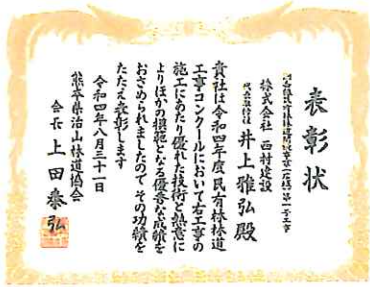 表彰状
株式会社 西村建設
代表取締役 井上雅弘 殿
貴社は令和四年度民有林林道
工事コンクールにおいて右工事の
施工にあたり優れた技術と熱意に
よりほかの模範となる優秀な成績を
おさめられましたのでその功績を
たたえ表彰します
令和四年八月三十一日
熊本県治山林道協会
会長 上田泰弘